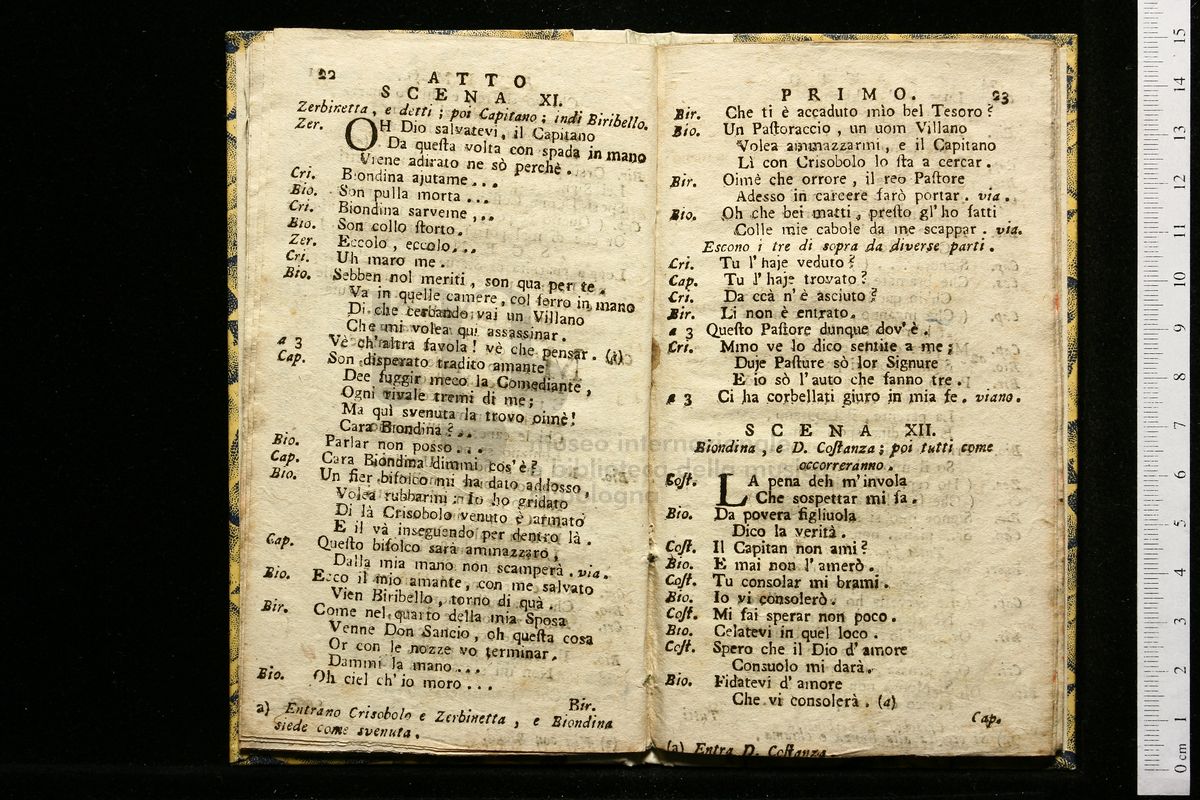 22
ATTO
SCENA XI.
Zerbinetta, e detti; poi Capitano; indi Biribello.
Zer. OH Dio salvatevi, il Capitano
Da questa volta con spada in mano
Viene adirato ne sò perchè.
Cri. Biondina ajutame...
Bio. Son pulla morta...
Cri. Biondina sarveme...
Bio. Son collo storto.
Zer. Eccolo, eccolo...
Cri. Uh maro me.
Bio. Sebben nol meriti, son qua per te.
Va in quelle camere, col ferro in mano
Di che cercando vai un Villano
Che mi volea qui assassinar.
a 3 Vè ch'altra favola! vè che pensar. (a)
Cap. Son disperato tradito amante
Dee fuggir meco la Comediante,
Ogni rivale tremi di me;
Ma qui svenuta la trovo oimè!
Cara Biondina?..
Bio. Parlar non posso...
Cap. Cara Biondina dimmi cos'è?
Bio. Un fier bifolco mi ha dato addosso,
Volea rubbarmi: Io ho gridato
Di là Crisobolo venuto è armato
E il và inseguendo per dentro là.
Cap. Questo bifolco sarà ammazzato,
Dalla mia mano non scamperà. via.
Bio. Ecco il mio amante, con me salvato
Vien Biribello, torno di quà.
Bir. Come nel quarto della mia Sposa
Venne Don Sancio, oh questa cosa
Or con le nozze vo terminar.
Dammi la mano...
Bio. Oh ciel ch'io moro...
Bir.
a) Entrano Crisobolo e Zerbinetta, e Biondina
siede come svenuta.
PRIMO. 23
Bir. Che ti è accaduto mìo bel Tesoro?
Bio. Un Pastoraccio, un uom Villano
Volea ammazzarmi, e il Capitano
Lì con Crisobolo lo sta a cercar.
Bir. Oimè che orrore, il reo Pastore
Adesso in carcere farò portar. via.
Bio. Oh che bei matti, presto gl'ho fatti
Colle mie cabole da me scappar. via.
Escono i tre di sopra da diverse parti.
Cri. Tu l'haje veduto?
Cap. Tu l'haje trovato?
Cri. Da ccà n'è asciuto?
Bir. Li non è entrato.
a 3 Questo Pastore dunque dov'è.
Cri. Mmo ve lo dico sentite a me;
Duje Pasture sò lor Signure
E io sò l'auto che fanno tre.
a 3 Ci ha corbellati giuro in mia fe. viano.
SCENA XII.
Biondina, e D. Costanza; poi tutti come
occorreranno.
Cost. LA pena deh m'invola
Che sospettar mi fa.
Bio. Da povera figliuola
Dico la verità.
Cost. Il Capitan non ami?
Bio. E mai non l'amerò.
Cost. Tu consolar mi brami.
Bio. Io vi consolerò.
Cost. Mi fai sperar non poco.
Bio. Celatevi in quel loco.
Cost. Spero che il Dio d'amore
Consuolo mi darà.
Bio. Fidatevi d'amore
Che vi consolerà. (a)
Cap.
(a) Entra D. Costanza.
museo internazionale
biblioteca della musica
bologna
0 cm 1 2 3 4 5 6 7 8 9 10 11 12 13 14 15